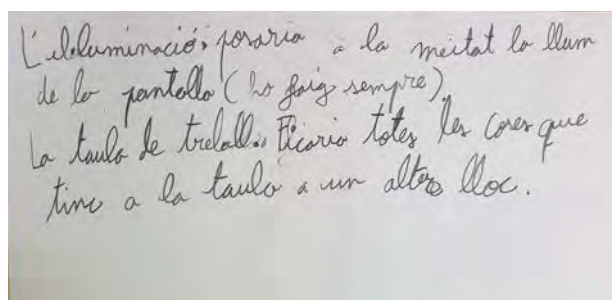 L'il·luminació: posaria a la meitat la llum
de la pantalla (ho faig sempre).
La taula de treball: Ficaria totes les coses que
tinc a la taula a un altre lloc.